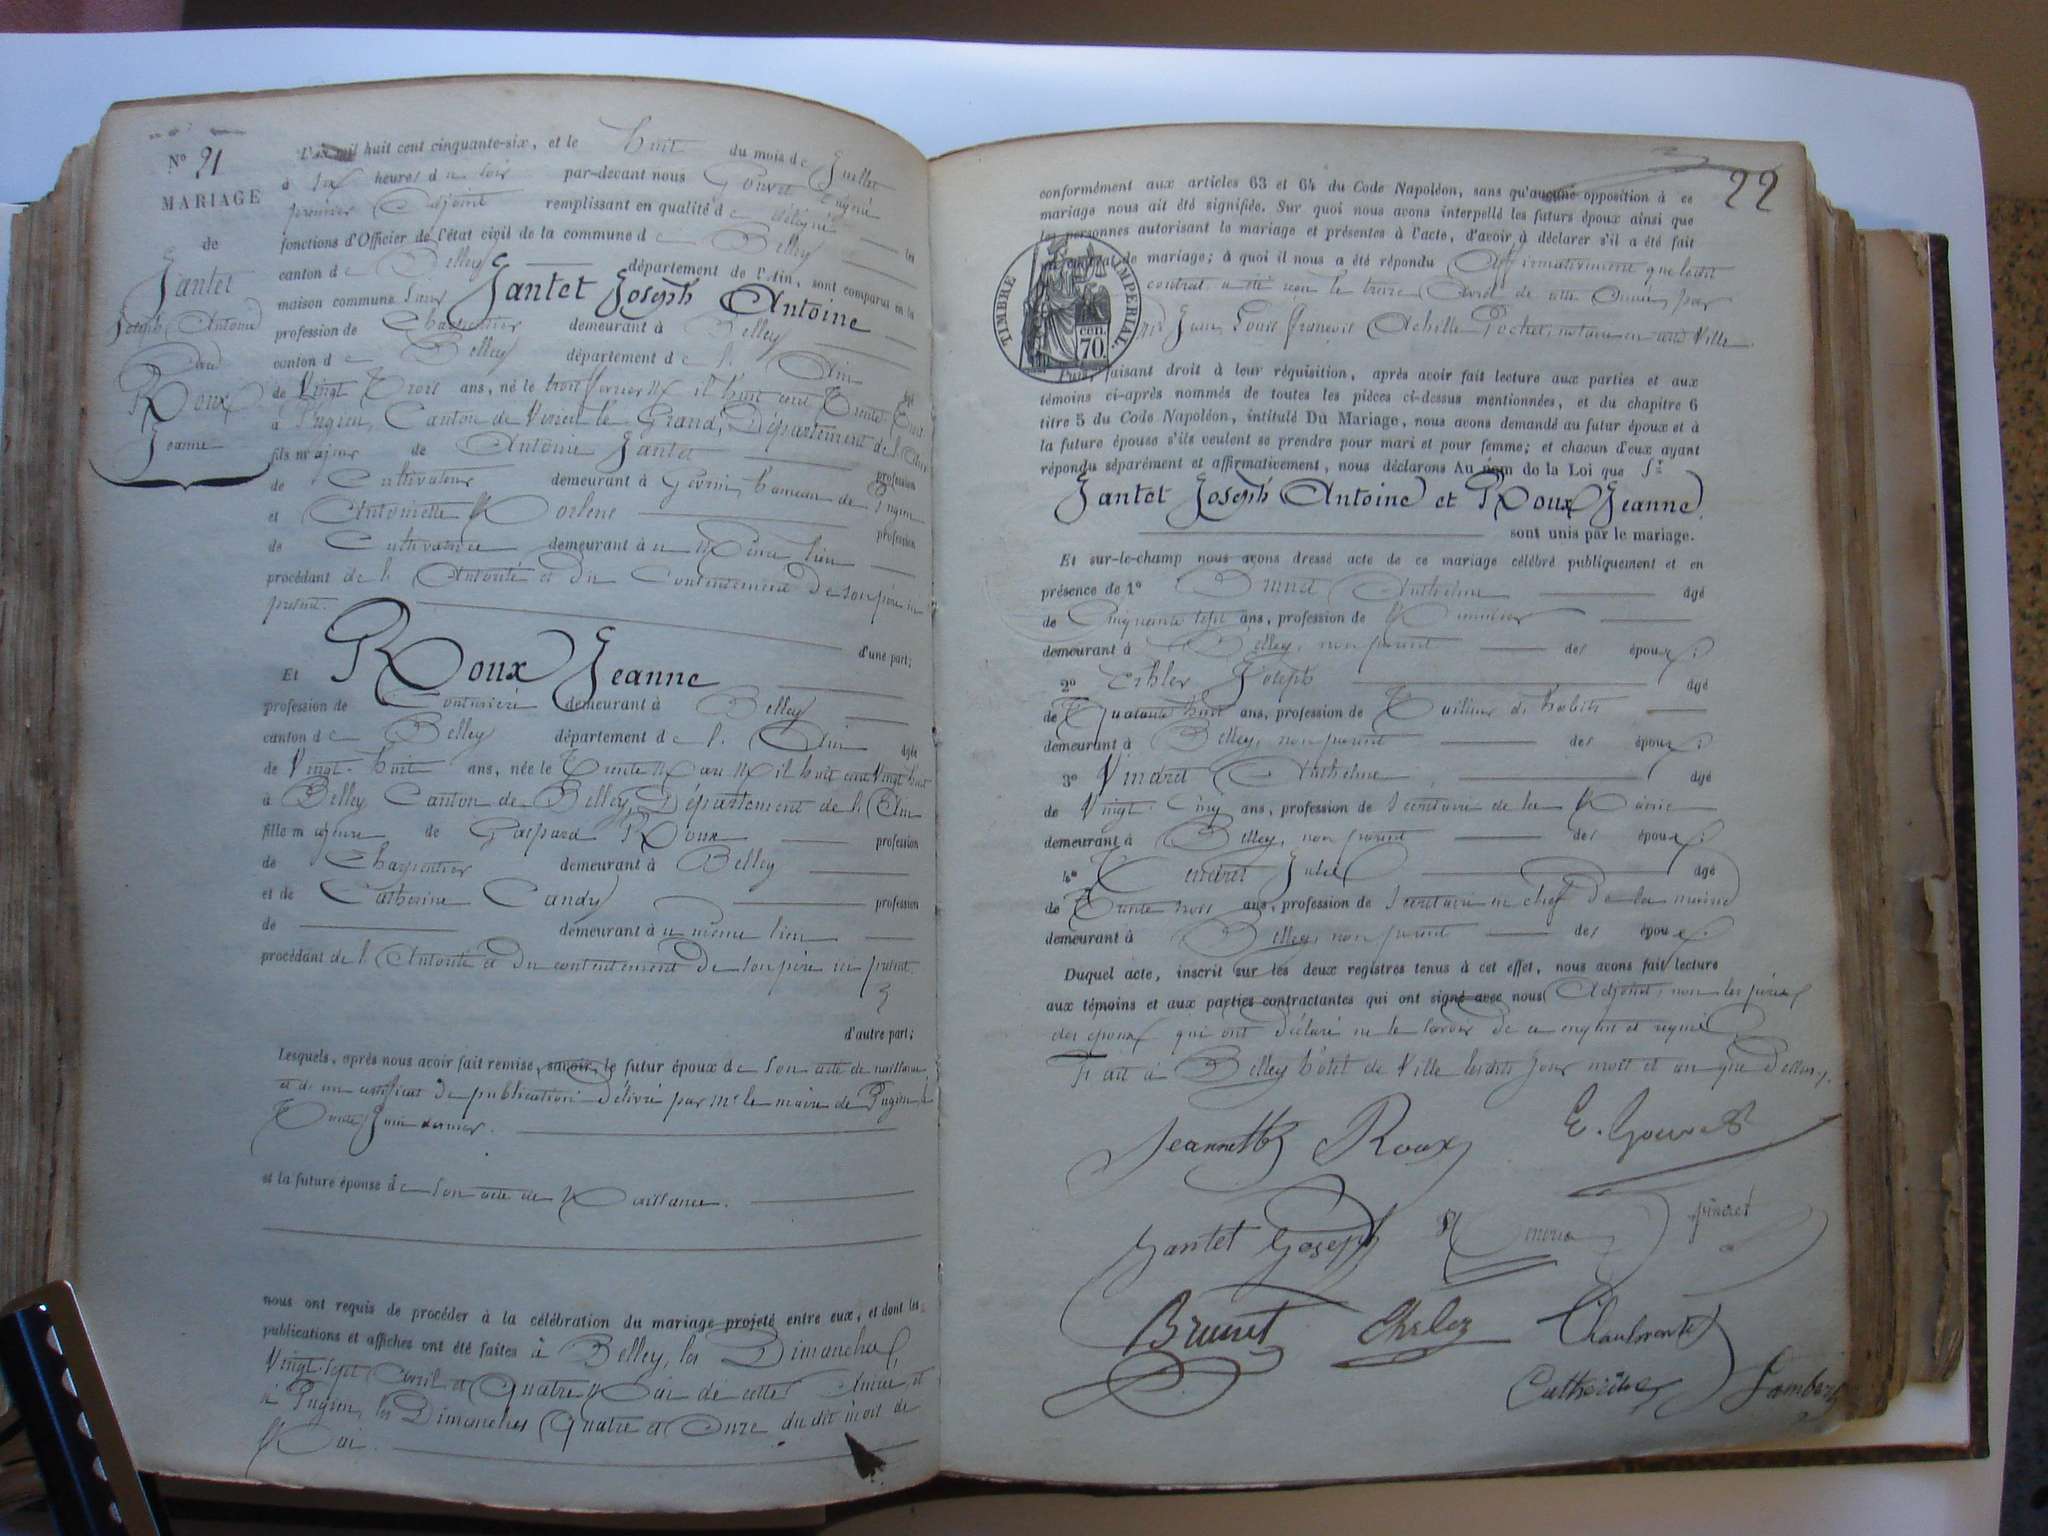 N° 21
MARIAGE
de
Jantet
Joseph Antoine
Roux
Jeanne
L'an mil huit cent cinquante-six, et le huit du mois de Juillet
à six heures du soir par-devant nous Gouvet Eugène
premier Adjoint remplissant en qualité de délégué les
fonctions d'Officier de l'état civil de la commune de Belley
canton de Belley département de l'Ain, sont comparus en la
maison commune Jantet Joseph Antoine
profession de Charpentier demeurant à Belley
canton de Belley département de l' Ain âgé
de Vingt Trois ans, né le trois février Mil huit cent Trente Trois
à Pugieu, Canton de Virieu le Grand, Département de l'Ain
fils majeur de Antoine Jantet profession
de Cultivateur demeurant à hameau de Pugieu
et Antoinette profession
de Cultivatrice demeurant à u Même lieu
procédant de l' Autorité et du Consentement de son père ici
présent.
d'une part;
Et Roux Jeanne
profession de Couturière demeurant à Belley
canton de Belley département de l' Ain âgée
de Vingt-huit ans, née le Trente Mars Mil huit cent Vingt huit
à Belley Canton de Belley, Département de l'Ain
fille majeure de Gaspard Roux profession
de Charpentier demeurant à Belley
et de Catherine Candy profession
de demeurant à u même lieu
procédant de l' Autorité et du consentement de son père ici présent.
d'autre part;
Lesquels, après nous avoir fait remise, savoir, le futur époux de son acte de naissance
et d'un certificat de publication délivré par Mr le maire de Pugieu, le
Trente Juin dernier.
et la future épouse de son acte de Naissance.
nous ont requis de procéder à la célébration du mariage projeté entre eux, et dont les
publications et affiches ont été faites à Belley, les Dimanches
Vingt-sept Avril et Quatre Mai de cette Année, et
à Pugieu, les Dimanches Quatre et Onze du dit mois de
Mai.
22
conformément aux articles 63 et 64 du Code Napoléon, sans qu'aucune opposition à ce
mariage nous ait été signifiée. Sur quoi nous avons interpellé les futurs époux ainsi que
les personnes autorisant le mariage et présentes à l'acte, d'avoir à déclarer s'il a été fait
un contrat de mariage; à quoi il nous a été répondu Affirmativement que ledit
contrat a été reçu le treize Avril de cette Année, par
Me Jean Louis François Achille Pochet, notaire en cette Ville.
TIMBRE IMPERIAL.
70 cen.
Puis, faisant droit à leur réquisition, après avoir fait lecture aux parties et aux
témoins ci-après nommés de toutes les pièces ci-dessus mentionnées, et du chapitre 6
titre 5 du Code Napoléon, intitulé Du Mariage, nous avons demandé au futur époux et à
la future épouse s'ils veulent se prendre pour mari et pour femme; et chacun d'eux ayant
répondu séparément et affirmativement, nous déclarons Au nom de la Loi que Sr
Jantet Joseph Antoine et Roux Jeanne
sont unis par le mariage.
Et sur-le-champ nous avons dressé acte de ce mariage célébré publiquement et en
présence de 1° Brunet Anthelme âgé
de Cinquante sept ans, profession de Menuisier
demeurant à Belley, non parent des époux;
2° Joseph âgé
de Quarante huit ans, profession de Tailleur d'habits
demeurant à Belley, non parent des époux;
3° Vindret Anthelme âgé
de Vingt-Cinq ans, profession de Secrétaire de la Mairie
demeurant à Belley, non parent des époux;
4° âgé
de Trente trois ans, profession de Secrétaire en chef de la mairie
demeurant à Belley, non parent des époux.
Duquel acte, inscrit sur les deux registres tenus à cet effet, nous avons fait lecture
aux témoins et aux parties contractantes qui ont signé avec nous Adjoint, non les pères
des époux qui ont déclaré ne le savoir de ce enquis et requis
Fait à Belley hôtel de Ville lesdits jour mois et an que dessus.
Jeannette Roux E. Gouvet
Jantet Joseph
Brunet
Catherine Lambert